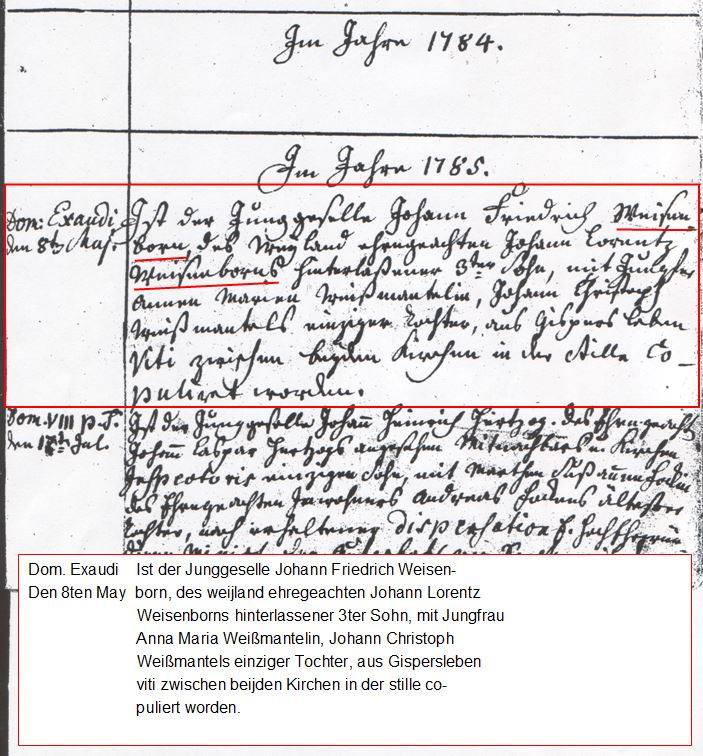 Im Jahre 1784.
Im Jahre 1785.
Dom: Exaudi, Ist der Junggeselle Johann Friedrich Weisen
den 8ten May. born, des weyland ehregeachten Johann Lorentz
Weisenborns hinterlaßener 3ter Sohn, mit Jungfer
Annen Marien Weißmantelin, Johann Christoph
Weißmantels einziger Tochter, aus Gispersleben
Viti zwischen beyden Kirchen in der Stille Co-
puliret worden.
Dom. VIII p. T. Ist der Junggeselle Johann Heinrich Hertzog. des Ehrengeacht
den Jul. Johann Caspar Hertzogs Mitnachbars u. Kirchen
einzigen Sohn, mit Marthen
des Ehrengeachten Inwohners Andreas Fadens ältesten
Tochter, nach erhaltener dispensation
Dom. Exaudi Ist der Junggeselle Johann Friedrich Weisen-
Den 8ten May born, des weijland ehregeachten Johann Lorentz
Weisenborns hinterlassener 3ter Sohn, mit Jungfrau
Anna Maria Weißmantelin, Johann Christoph
Weißmantels einziger Tochter, aus Gispersleben
viti zwischen beijden Kirchen in der stille co-
puliert worden.